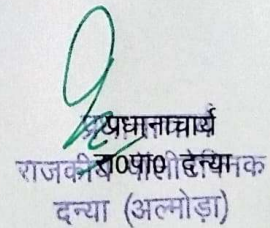 प्रधानाचार्य
रा०पा० दन्या
राजकीय पॉलीटेक्निक
दन्या (अल्मोड़ा)